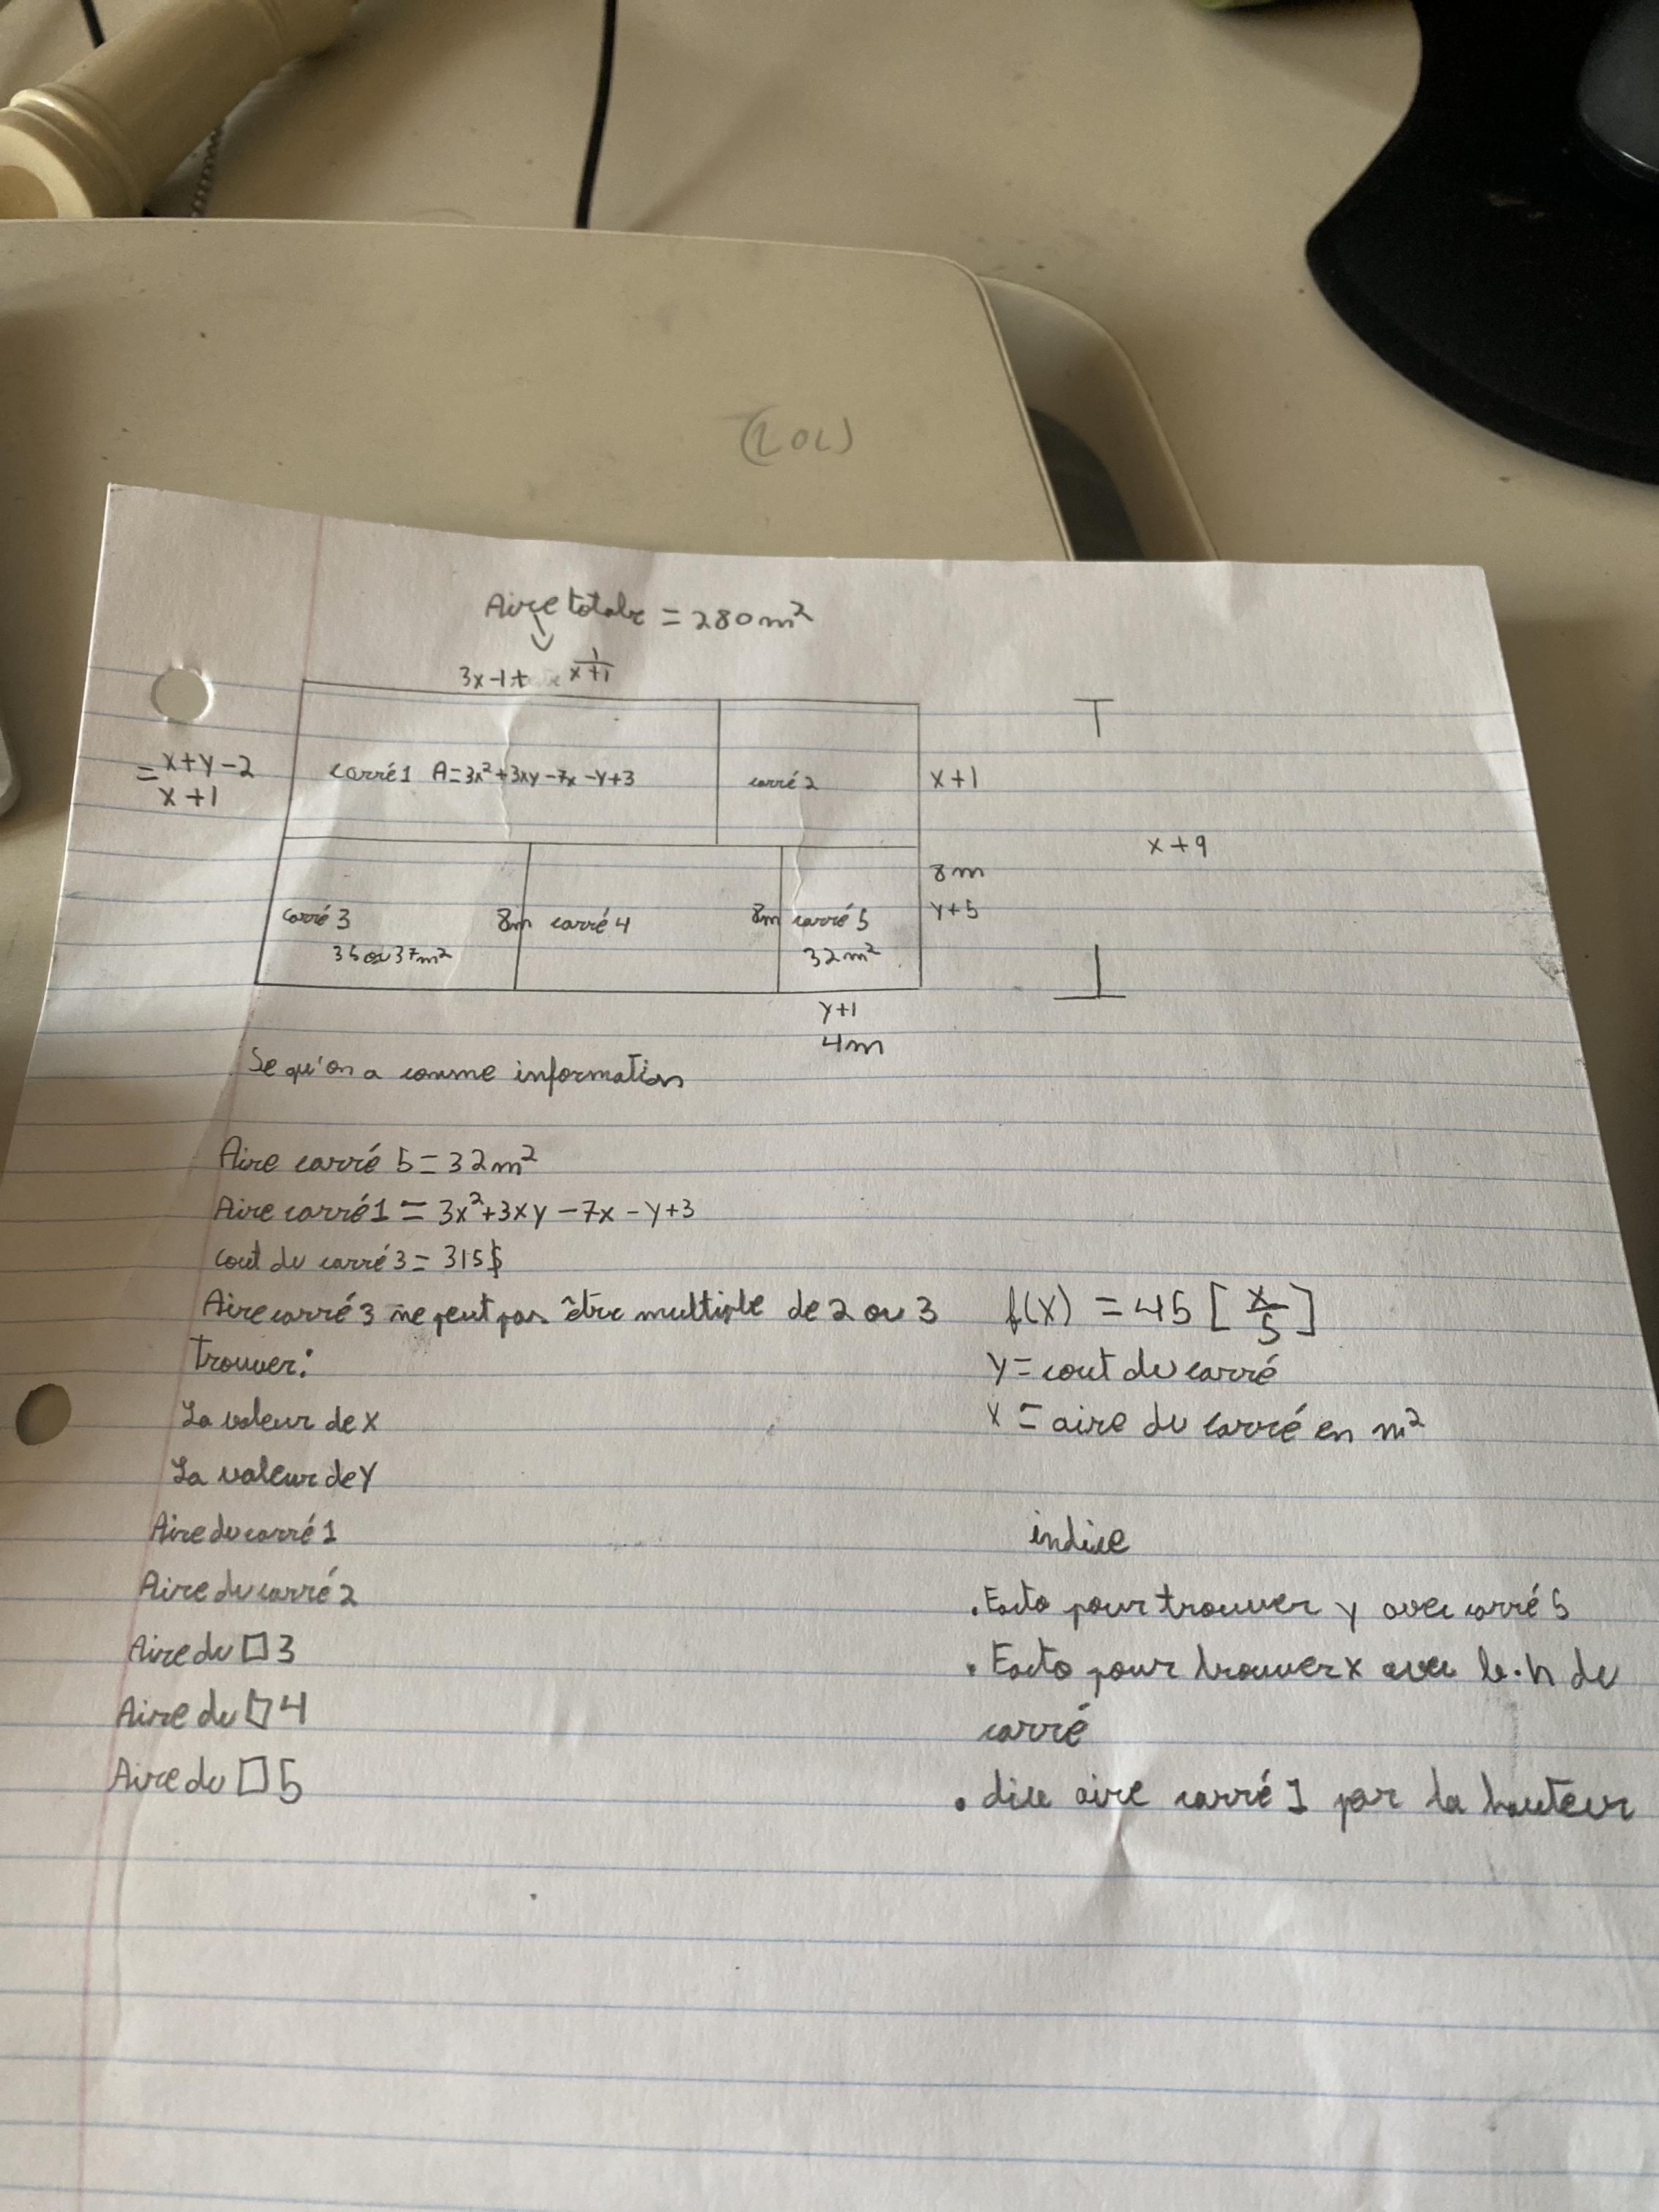 (LOL)
Aire totale = 280m²
3x-1+ 1/(x+1)
= x+y-2
x+1
carré 1 A=3x²+3xy-7x-y+3
carré 2
x+1
x+9
8m
y+5
carré 3
35 ou 37m²
8m
carré 4
8m
carré 5
32m²
y+1
4m
Se qu'on a comme information
Aire carré 5 = 32m²
Aire carré 1 = 3x²+3xy-7x-y+3
cout du carré 3 = 315$
Aire carré 3 ne peut pas être multiple de 2 ou 3
f(x) = 45 [x/5]
Trouver:
y = cout du carré
La valeur de x
x = aire du carré en m²
La valeur de y
Aire du carré 1
indice
Aire du carré 2
. Facto pour trouver y avec carré 5
Aire du □ 3
. Facto pour trouver x avec b·h du
carré
Aire du □ 4
Aire du □ 5
. dice aire carré 1 par la hauteur